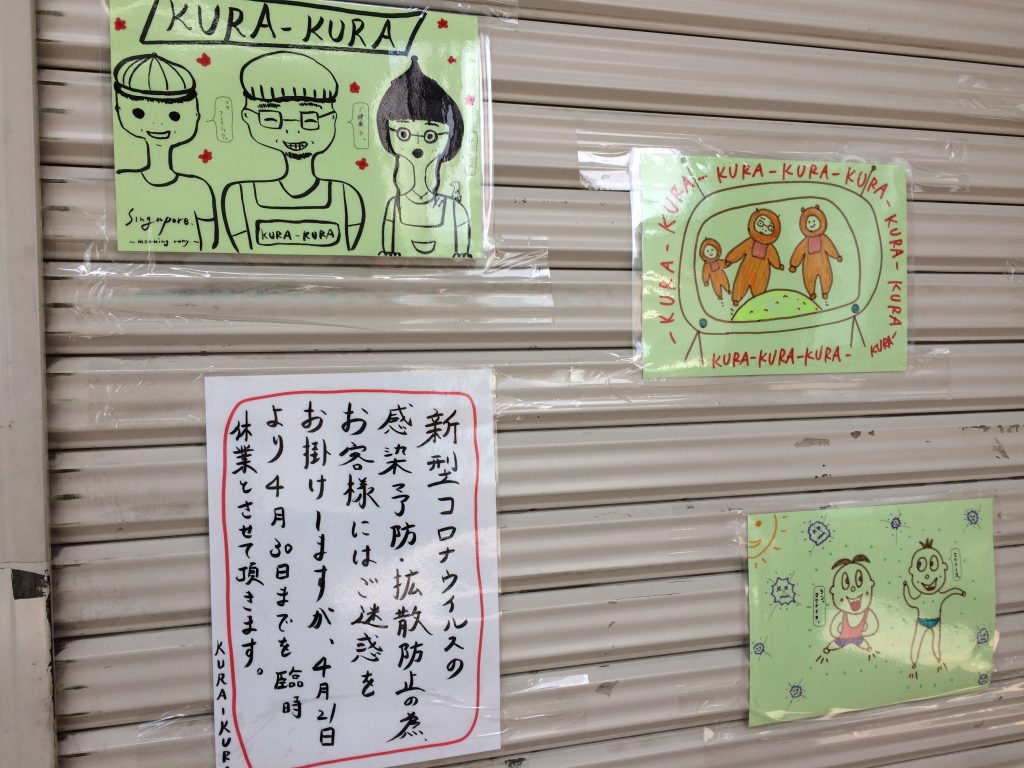 KURA-KURA
KURA-KURA
Singapore.
~morning rony.~
- KURA - KURA - KURA - KURA - KURA - KURA - KURA
KURA-KURA-KURA-
KURA-
新型コロナウイルスの
感染予防・拡散防止の為
お客様にはご迷惑を
お掛けしますが、4月21日
より4月30日までを臨時
休業とさせて頂きます。
KURA-KURA